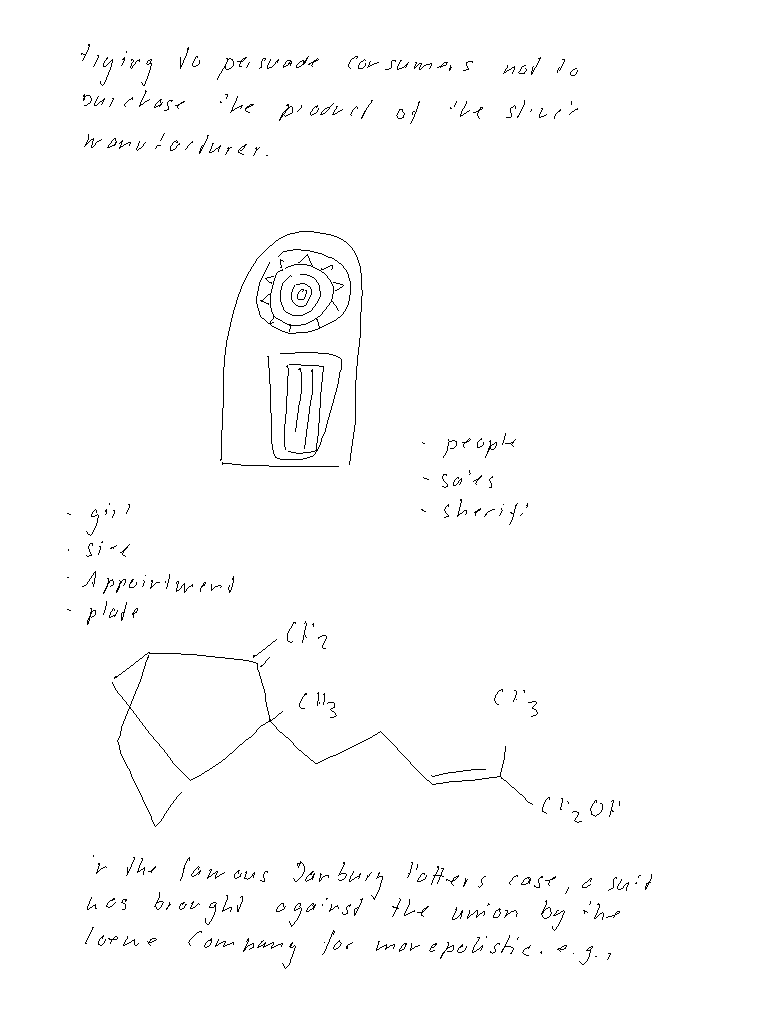 trying to persuade consumers not to
purchase the product of the struck
manufacturer.
- people
- sales
- sheriff
- girl
- site
- Appointment
- plate
CH2
CH3
CH3
CH2OH
in the famous Danbury Hatters case, a suit
was brought against the union by the
Loewe Company for monopolistic. e.g.,